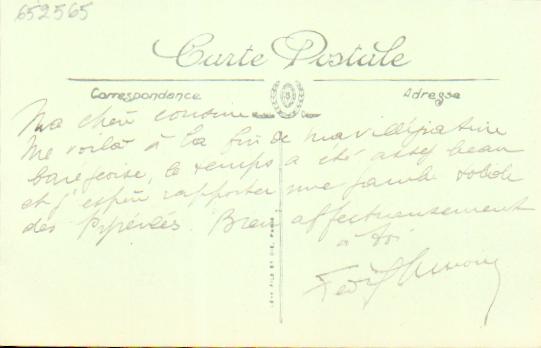 652565
Carte Postale
Correspondance
Adresse
Ma chère cousine
Me voilà à la fin de ma villégiature
le temps a été assez beau
et j'espère rapporter une jambe solide
des Pyrénées. Bien affectueusement
à toi